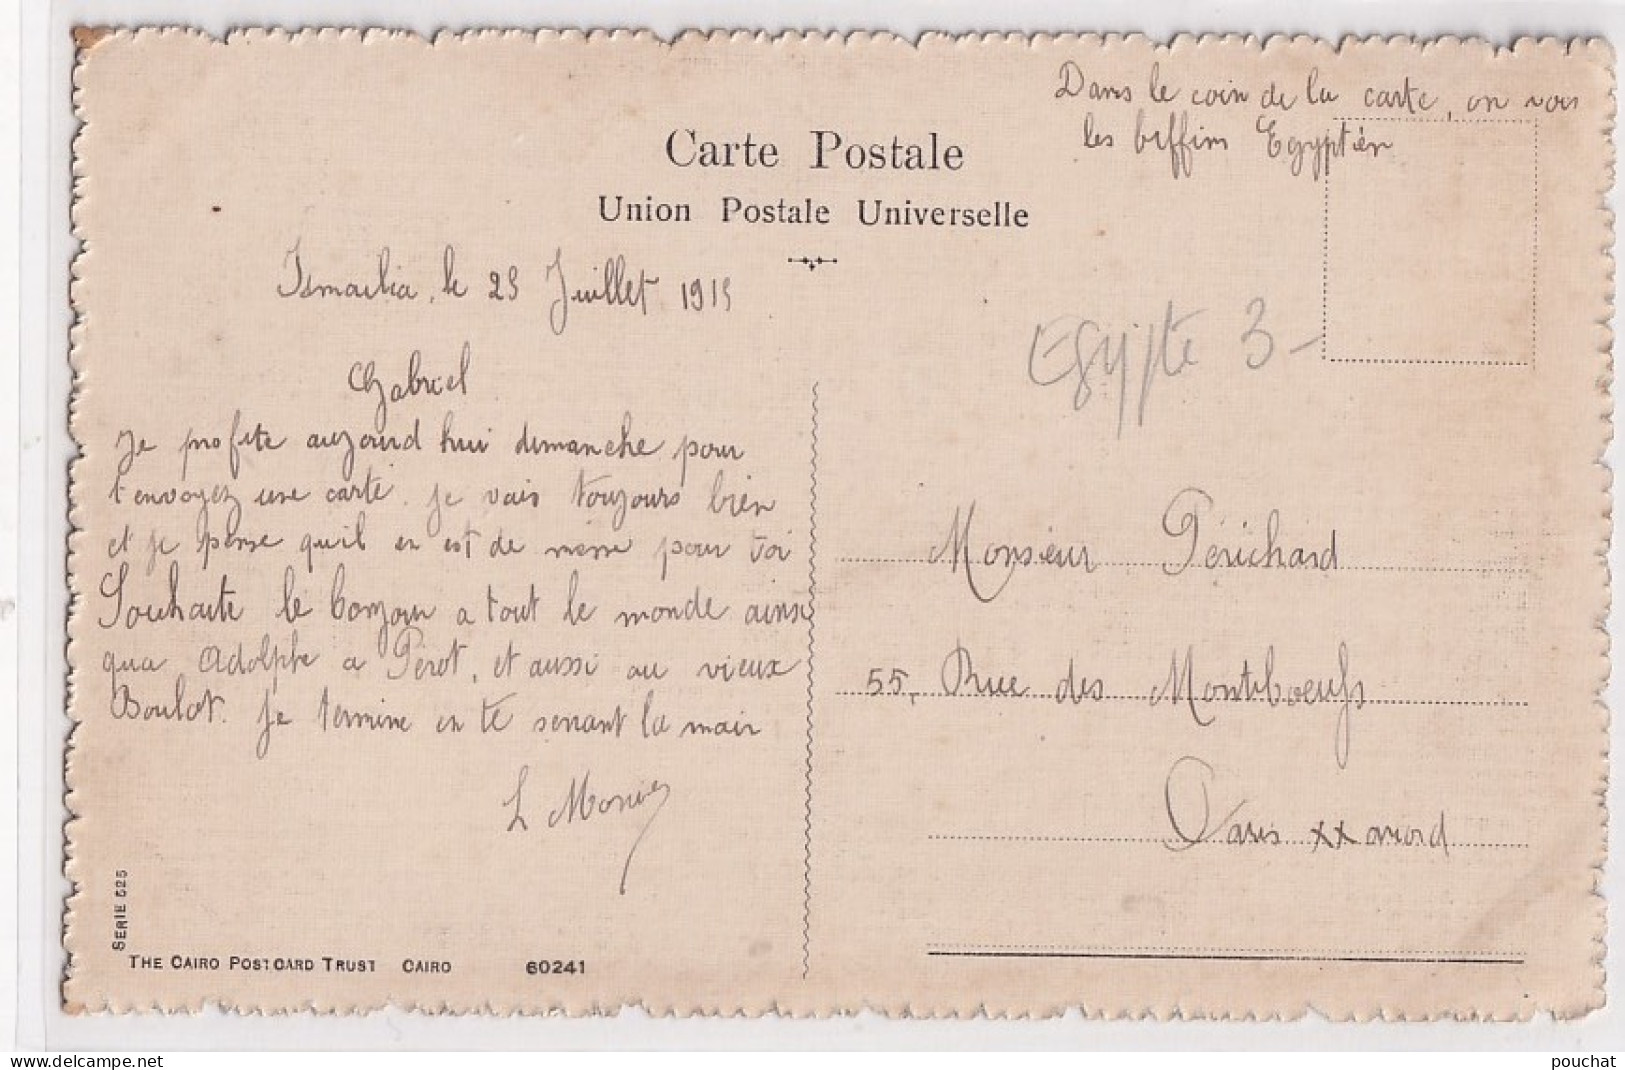 Dans le coin de la carte, on vois
les biffins Egyptièn
Carte Postale
Union Postale Universelle
Ismailia, le 25 Juillet 1915
Egypte 3-
Gabriel
Je profite aujourd hui dimanche pour
t'envoyez une carte. Je vais toujours bien
et je pense qu'il en est de même pour toi
Souhaite le bonjour a tout le monde ainsi
qua Adolphe a Pérot, et aussi au vieux
Boulot. Je termine en te serrant la main
L
Monsieur Périchard
55, Rue des Montiboeufs
Paris XX arrond
SERIE 525
THE CAIRO POSTCARD TRUST CAIRO 60241
pouchat